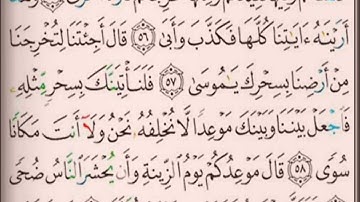 أَرَيْنَٰهُ ءَايَٰتِنَا كُلَّهَا فَكَذَّبَ وَأَبَىٰ ﴿٥٦﴾ قَالَ أَجِئْتَنَا لِتُخْرِجَنَا
مِنْ أَرْضِنَا بِسِحْرِكَ يَٰمُوسَىٰ ﴿٥٧﴾ فَلَنَأْتِيَنَّكَ بِسِحْرٍ مِّثْلِهِۦ
فَٱجْعَلْ بَيْنَنَا وَبَيْنَكَ مَوْعِدًا لَّا نُخْلِفُهُۥ نَحْنُ وَلَآ أَنتَ مَكَانًا
سُوًى ﴿٥٨﴾ قَالَ مَوْعِدُكُمْ يَوْمُ ٱلزِّينَةِ وَأَن يُحْشَرَ ٱلنَّاسُ ضُحًى